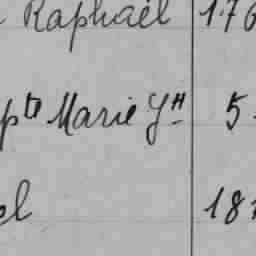 Raphaël 176
pte Marie Jh 5
el 18